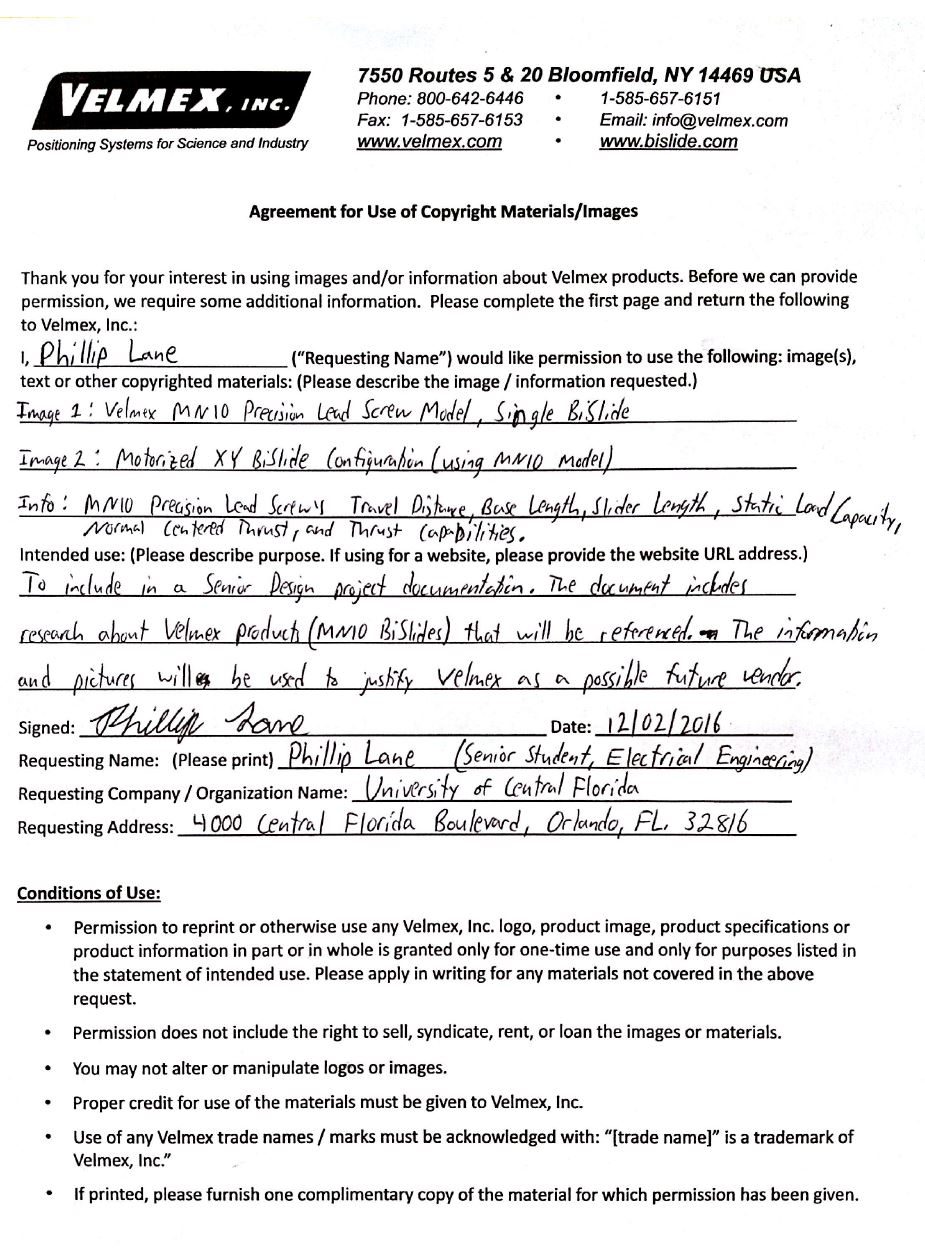 VELMEX, INC.
Positioning Systems for Science and Industry
7550 Routes 5 & 20 Bloomfield, NY 14469 USA
Phone: 800-642-6446 • 1-585-657-6151
Fax: 1-585-657-6153 • Email: info@velmex.com
www.velmex.com • www.bislide.com
Agreement for Use of Copyright Materials/Images
Thank you for your interest in using images and/or information about Velmex products. Before we can provide
permission, we require some additional information. Please complete the first page and return the following
to Velmex, Inc.:
I, Phillip Lane ("Requesting Name") would like permission to use the following: image(s),
text or other copyrighted materials: (Please describe the image / information requested.)
Image 1: Velmex MN10 Precision Lead Screw Model, Single BiSlide
Image 2: Motorized XY BiSlide Configuration (using MN10 Model)
Info: MN10 Precision Lead Screw's Travel Distance, Base Length, Slider Length, Static Load Capacity,
Normal Centered Thrust, and Thrust Capabilities.
Intended use: (Please describe purpose. If using for a website, please provide the website URL address.)
To include in a Senior Design project documentation. The document includes
research about Velmex products (MN10 BiSlides) that will be referenced. The information
and pictures will be used to justify Velmex as a possible future vendor.
Signed: Phillip Lane Date: 12/02/2016
Requesting Name: (Please print) Phillip Lane (Senior Student, Electrical Engineering)
Requesting Company / Organization Name: University of Central Florida
Requesting Address: 4000 Central Florida Boulevard, Orlando, FL. 32816
Conditions of Use:
• Permission to reprint or otherwise use any Velmex, Inc. logo, product image, product specifications or
product information in part or in whole is granted only for one-time use and only for purposes listed in
the statement of intended use. Please apply in writing for any materials not covered in the above
request.
• Permission does not include the right to sell, syndicate, rent, or loan the images or materials.
• You may not alter or manipulate logos or images.
• Proper credit for use of the materials must be given to Velmex, Inc.
• Use of any Velmex trade names / marks must be acknowledged with: "[trade name]" is a trademark of
Velmex, Inc."
• If printed, please furnish one complimentary copy of the material for which permission has been given.